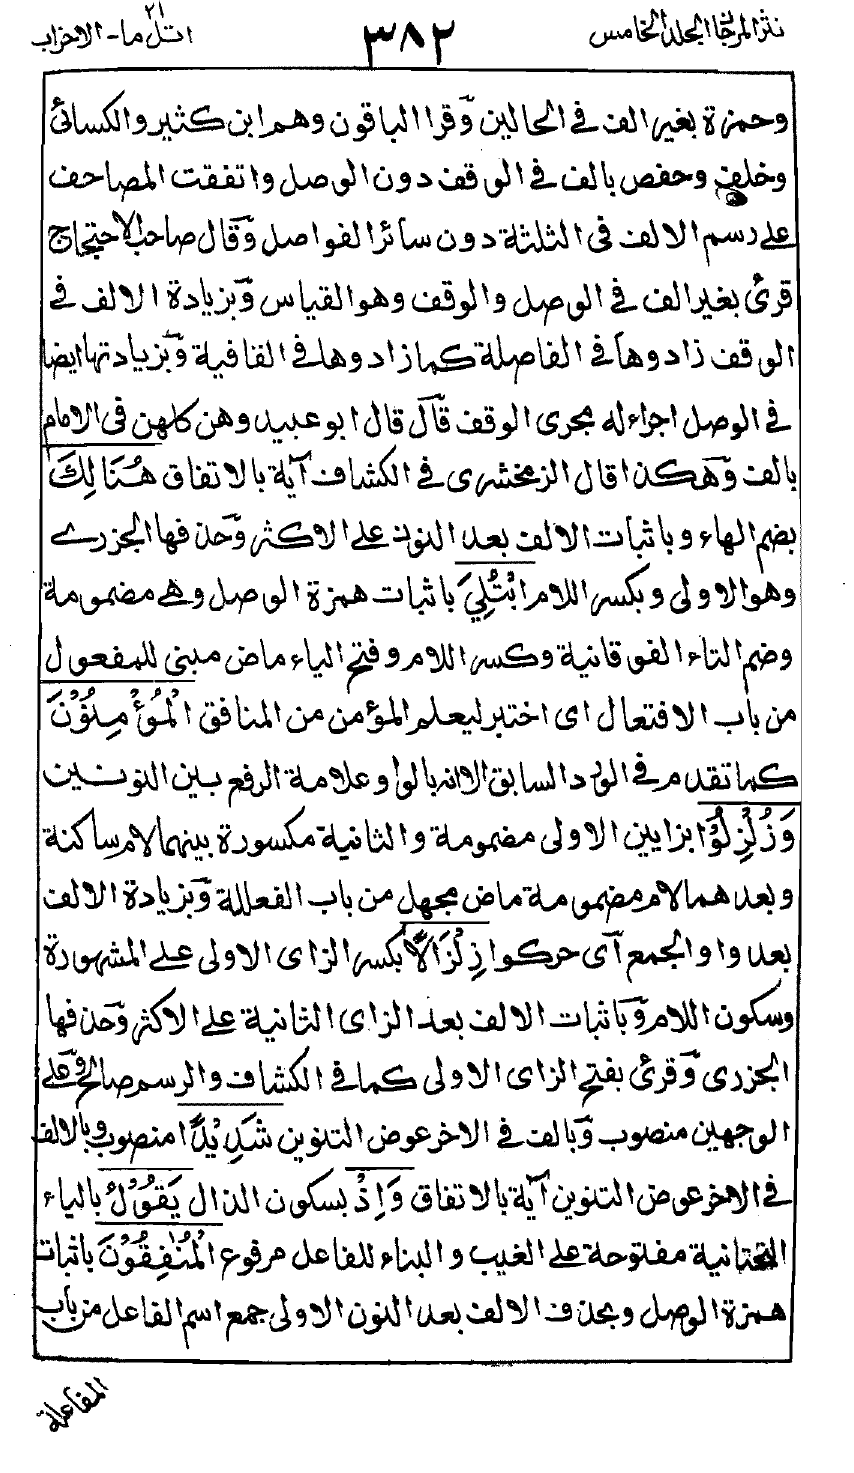 نثر المرجان المجلد الخامس ٣٨٢ اتل ما - الاحزاب ٢١
وحمزة بغير الف فى الحالين وقرا الباقون وهم ابن كثير والكسائى
وخلف وحفص بالف فى الوقف دون الوصل واتفقت المصاحف
على رسم الالف فى الثلثة دون سائر الفواصل وقال صاحب الاحتجاج
قرئ بغير الف فى الوصل والوقف وهو القياس وبزيادة الالف فى
الوقف زادوها فى الفاصلة كما زادوها فى القافية وبزيادتها ايضا
فى الوصل اجراء له مجرى الوقف قال قال ابو عبيد وهن كلهن فى الامام
بالف وهكذا قال الزمخشرى فى الكشاف آية بالاتفاق هُنَالِكَ
بضم الهاء وباثبات الالف بعد النون على الاكثر وحذفها الجزرے
وهو الاولى وبكسر اللام ابْتُلِيَ باثبات همزة الوصل وهى مضمومة
وضم التاء الفوقانية وكسر اللام وفتح الياء ماض مبنى للمفعول
من باب الافتعال اى اختبر ليعلم المؤمن من المنافق الْمُؤْمِنُوْنَ
كما تقدم فى الورد السابق الا انه بالواو علامة الرفع بين النونين
وَزُلْزِلُوْا بزايين الاولى مضمومة والثانية مكسورة بينهما لام ساكنة
وبعدهما لام مضمومة ماض مجهل من باب الفعللة وبزيادة الالف
بعد واو الجمع آى حركوا زِلْزَالًا بكسر الزاى الاولى على المشهورة
وسكون اللام وباثبات الالف بعد الزاى الثانية على الاكثر وحذفها
الجزرى وقرئ بفتح الزاى الاولى كما فى الكشاف والرسم صالح وعلى
الوجهين منصوب وبالف فى الاخر عوض التنوين شَدِيْدًا منصوب وبالالف
فى الاخر عوض التنوين آية بالاتفاق وَاِذْ بسكون الذال يَقُوْلُ بالياء
التحتانية مفتوحة على الغيب والبناء للفاعل مرفوع الْمُنٰفِقُوْنَ باثبات
همزة الوصل وبحذف الالف بعد النون الاولى جمع اسم الفاعل من باب
المفاعلة